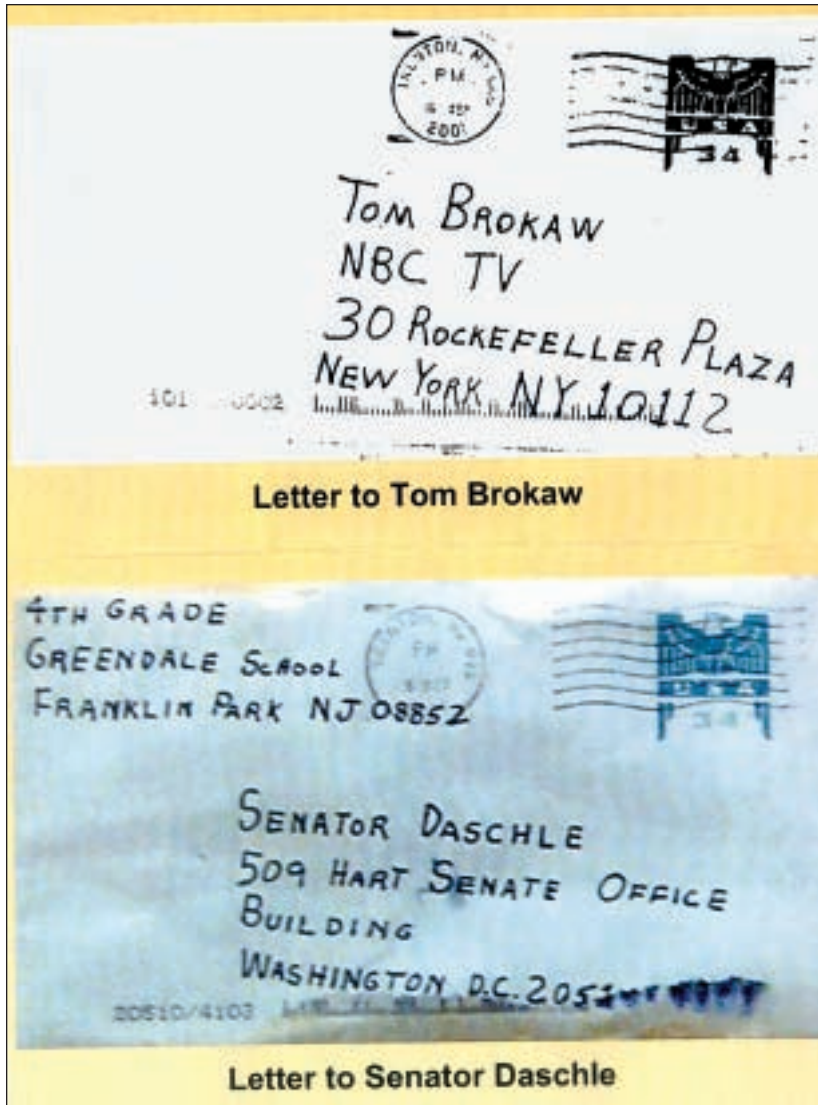 PM
2001
USA
34
TOM BROKAW
NBC TV
30 ROCKEFELLER PLAZA
NEW YORK NY 10112
Letter to Tom Brokaw
4TH GRADE
GREENDALE SCHOOL
FRANKLIN PARK NJ 08852
PM
USA
34
SENATOR DASCHLE
509 HART SENATE OFFICE
BUILDING
WASHINGTON D.C. 2051
20510/4103
Letter to Senator Daschle